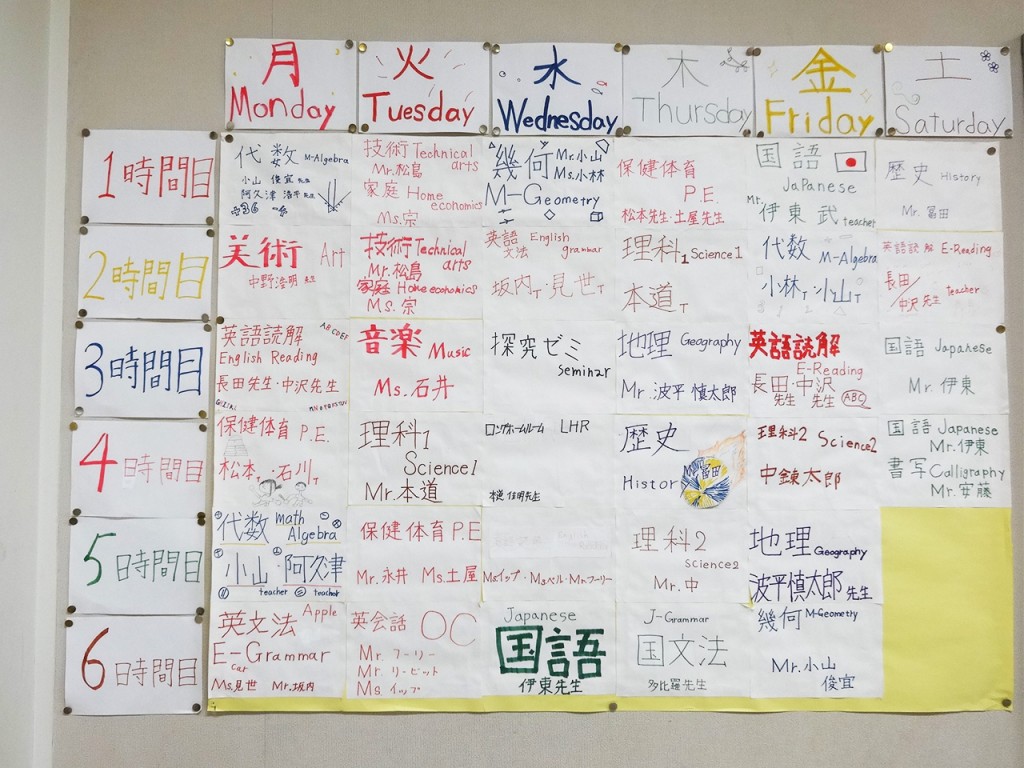 月
Monday
火
Tuesday
水
Wednesday
木
Thursday
金
Friday
土
Saturday
1時間目
代数 M-Algebra
小山 俊宜 先生
阿久津 浩平 先生
技術 Technical arts
Mr.松島
家庭 Home economics
Ms.宗
幾何 Mr.小山
Ms.小林
M-Geometry
保健体育
P.E.
松本先生・土屋先生
国語
Japanese
Mr. 伊東 武 teacher
歴史 History
Mr. 冨田
2時間目
美術 Art
中野浩明 先生
技術 Technical arts
Mr.松島
家庭 Home economics
Ms.宗
英語文法 English grammar
坂内T・見世T
理科1 Science1
本道T
代数 M-Algebra
小林T・小山T
英語読解 E-Reading
長田/中沢 先生 teacher
3時間目
英語読解 ABCDEF
English Reading
長田先生・中沢先生
音楽 Music
Ms.石井
探究ゼミ
seminar
地理 Geography
Mr.波平 慎太郎
英語読解
E-Reading
長田先生・中沢先生 ABC
国語 Japanese
Mr. 伊東
4時間目
保健体育 P.E.
松本T・石川T
理科1
Science1
Mr.本道
ロングホームルーム LHR
本道 佳明先生
歴史
Histor
冨田
理科2 Science2
中錬太郎
国語 Japanese
Mr.伊東
書写 Calligraphy
Mr.安藤
5時間目
代数 math Algebra
小山・阿久津
teacher teacher
保健体育 P.E
Mr.永井 Ms.土屋
Msイップ・Msベル・Mrフーリー
理科2
Science2
Mr.中
地理 Geography
波平慎太郎 先生
6時間目
英文法 Apple
E-Grammar
car
Ms.見世 Mr.坂内
英会話 OC
Mr.フーリー
Mr.リービット
Ms.イップ
Japanese
国語
伊東先生
J-Grammar
国文法
多比羅先生
幾何 M-Geometry
Mr.小山
俊宜